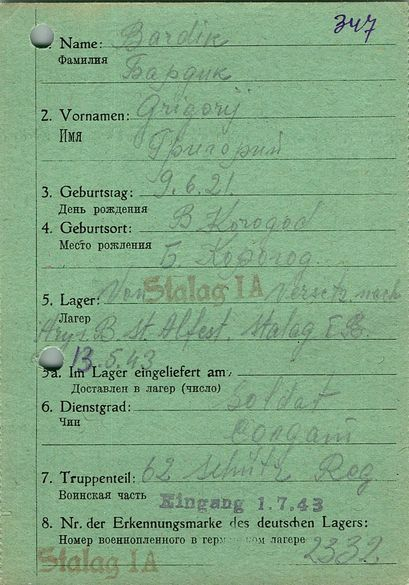 347
1. Name: Bardik
Фамилия Бардик
2. Vornamen: Grigorij
Имя Григорий
3. Geburtstag: 9.6.21.
День рождения
4. Geburtsort: B Korogod
Место рождения Б. Корогод.
5. Lager: Von Stalag IA Versetz. nach
Лагер
St. Stalag I B.
13.5.43
5a. Im Lager eingeliefert am:
Доставлен в лагер (число)
6. Dienstgrad: Soldat
Чин Солдат
7. Truppenteil: 62 Schütz Reg
Воинская часть Eingang 1.7.43
8. Nr. der Erkennungsmarke des deutschen Lagers:
Номер военнопленного в лагере 2332.
Stalag IA